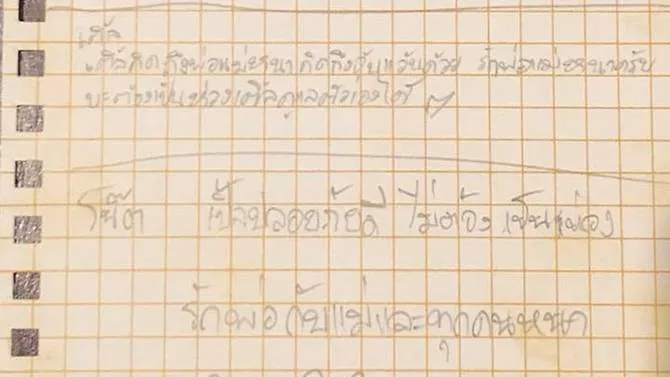 เติ้ล
เติ้ลคิดถึงพ่อแม่หนา คิดถึง ด้วย รักพ่อแม่หนาครับ
บะต้องเป็นห่วงเติ้ลดูแลตัวเองได้
โน๊ต ปลอยภัยดี ไม่ต้อง เป็นห่วง
รักพ่อกับแม่และทุกคนหนา